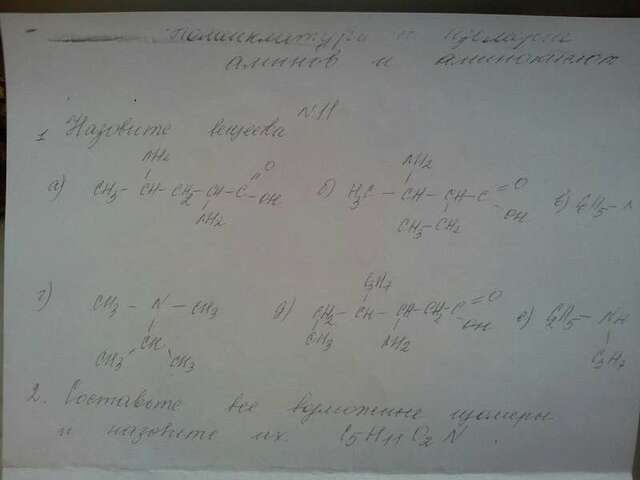 номенклатура и изомерия
аминов и аминокислот
NH
1 Назовите вещества
NH2 O
а) CH3 - CH - CH2 - CH - C - OH
NH2
NH2
б) H3C - CH - CH - C = O
OH
CH3 - CH2
в) C2H5 - N
г) CH3 - N - CH3
CH
CH3 CH3
C3H7
д) CH2 - CH - CH - CH2 - C = O
OH
CH3 NH2
е) C2H5 - NH
C3H7
2. Составьте все возможные изомеры
и назовите их. C5H11O2N.